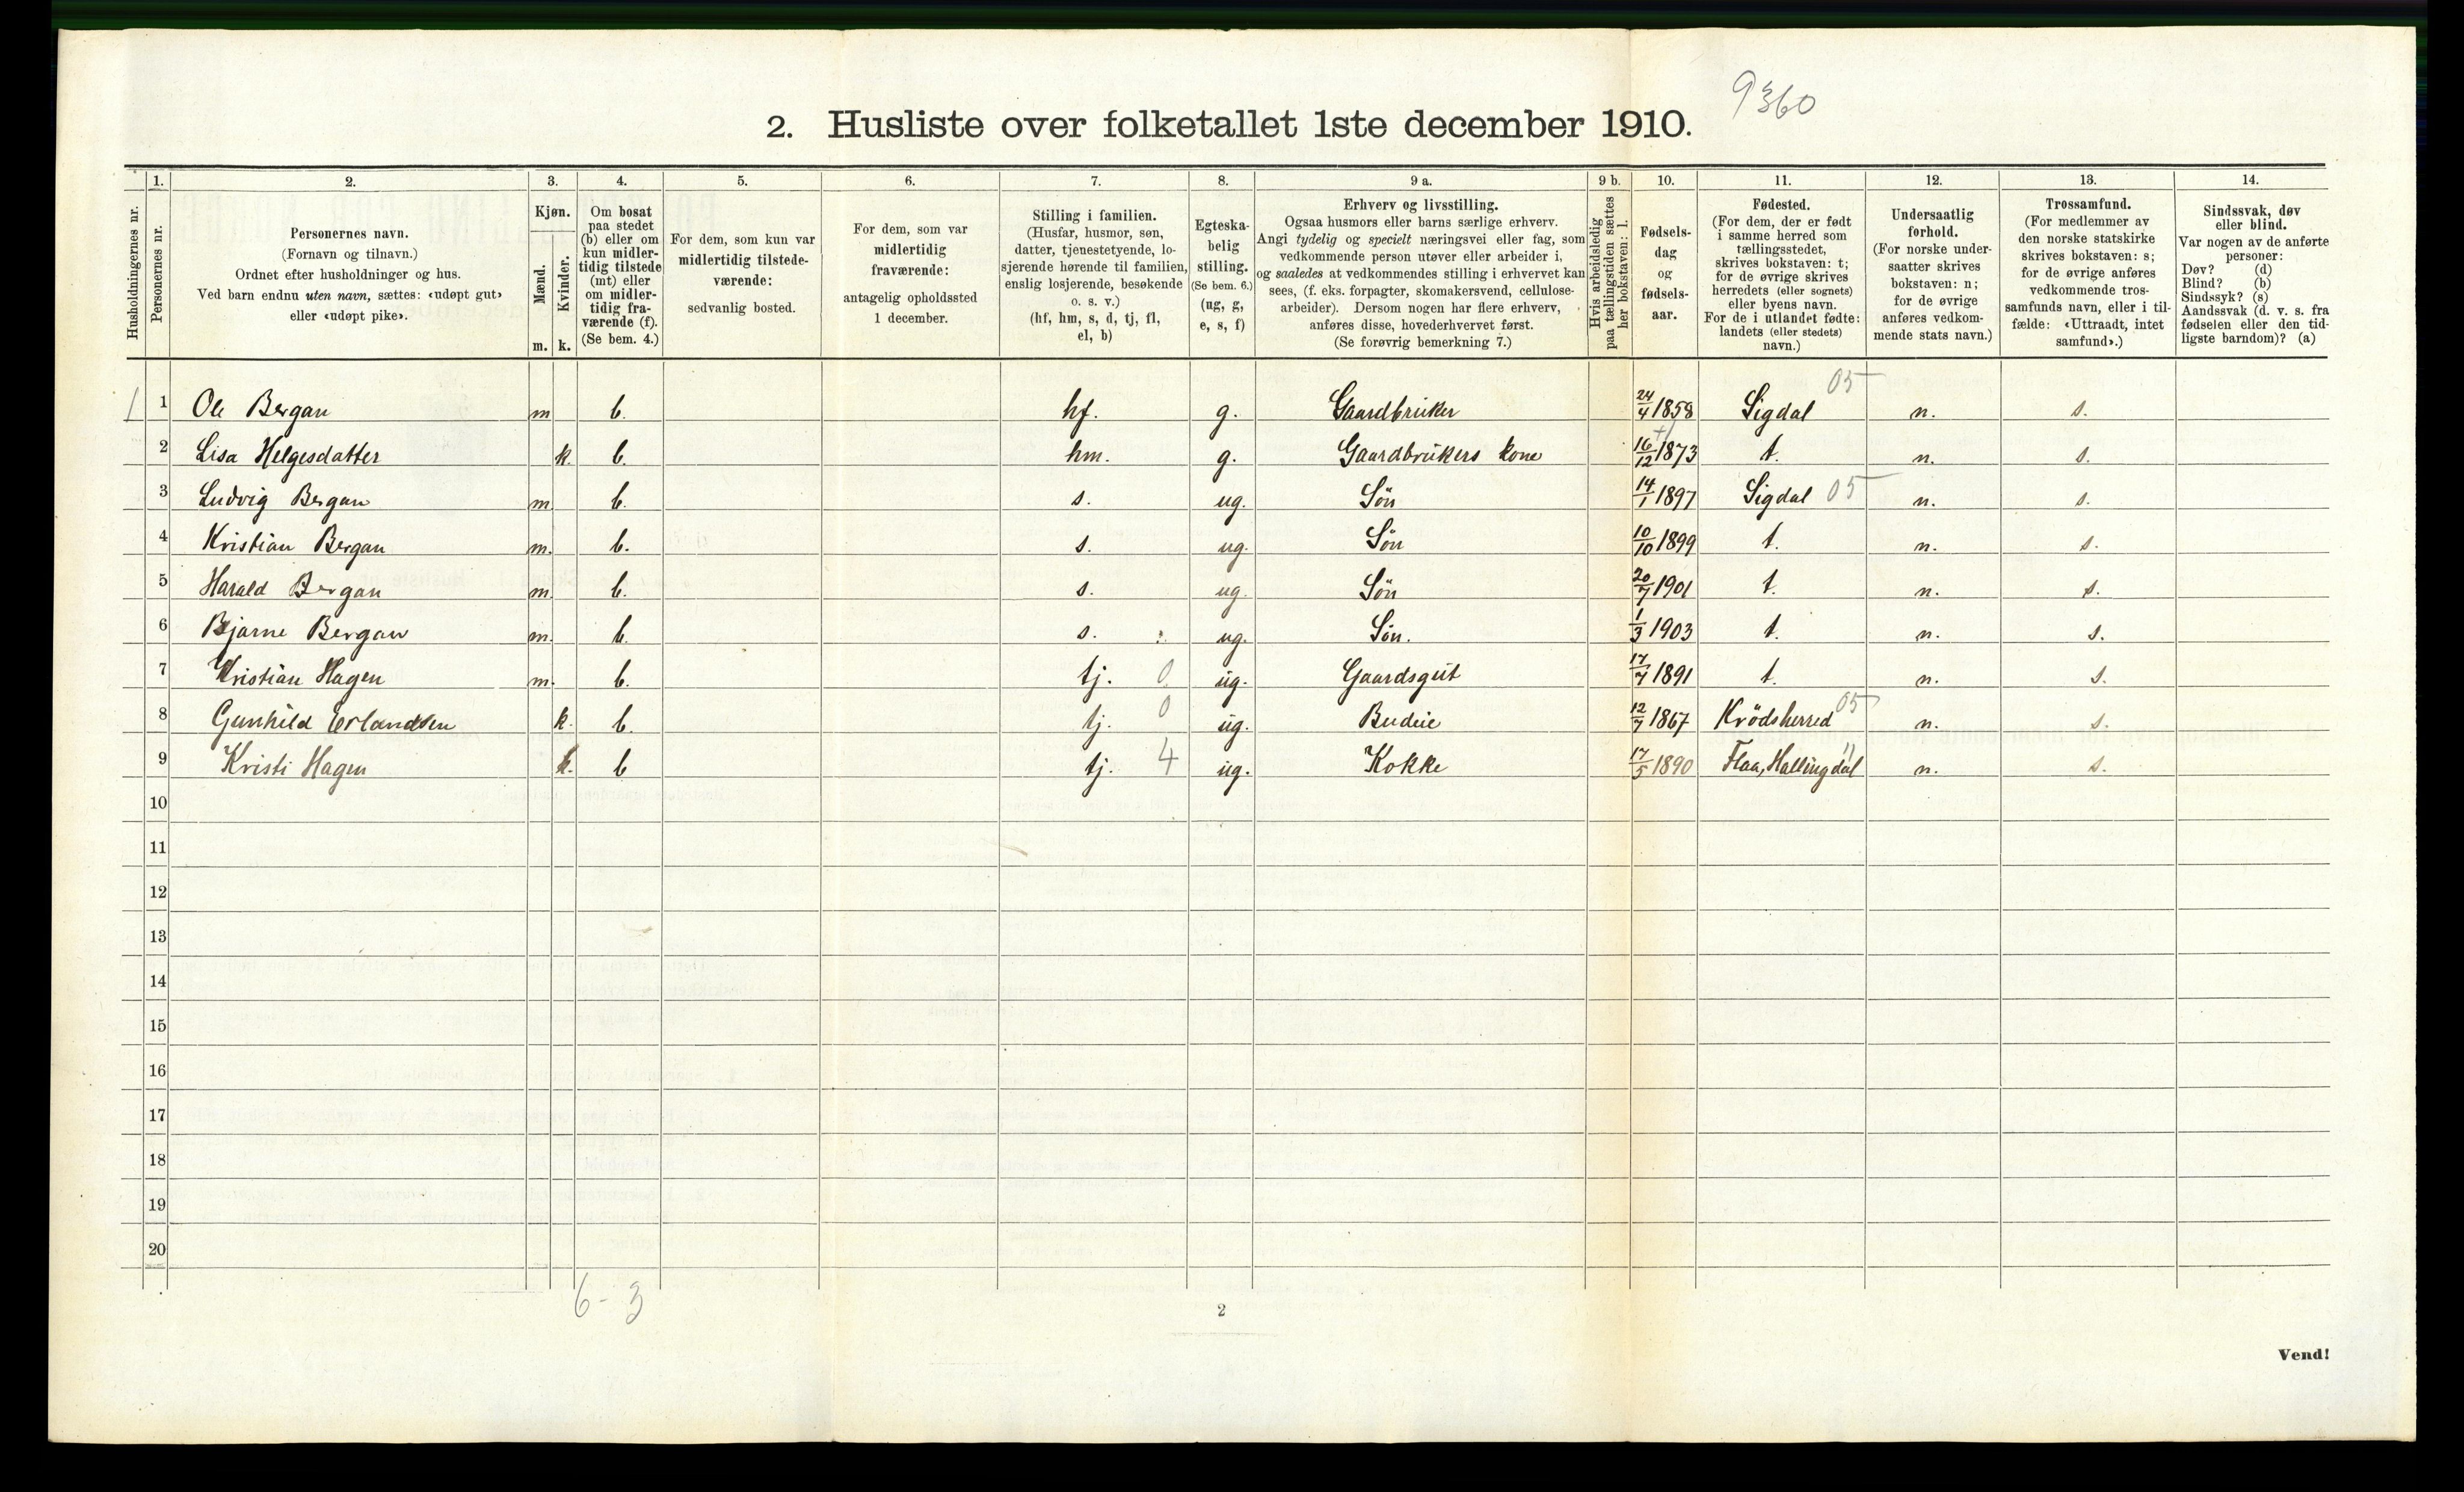 9360
2. Husliste over folketallet 1ste december 1910.
Husholdningernes nr.
1.
Personernes nr.
2.
Personernes navn.
(Fornavn og tilnavn.)
Ordnet efter husholdninger og hus.
Ved barn endnu uten navn, sættes: «udøpt gut»
eller «udøpt pike».
3.
Kjøn.
Mænd.
Kvinder.
m. k.
4.
Om bosat
paa stedet
(b) eller om
kun midler-
tidig tilstede
(mt) eller
om midler-
tidig fra-
værende (f).
(Se bem. 4.)
5.
For dem, som kun var
midlertidig tilstede-
værende:
sedvanlig bosted.
6.
For dem, som var
midlertidig
fraværende:
antagelig opholdssted
1 december.
7.
Stilling i familien.
(Husfar, husmor, søn,
datter, tjenestetyende, lo-
sjerende hørende til familien,
enslig losjerende, besøkende
o. s. v.)
(hf, hm, s, d, tj, fl,
el, b)
8.
Egteska-
belig
stilling.
(Se bem. 6.)
(ug, g,
e, s, f)
9 a.
Erhverv og livsstilling.
Ogsaa husmors eller barns særlige erhverv.
Angi tydelig og specielt næringsvei eller fag, som
vedkommende person utøver eller arbeider i,
og saaledes at vedkommendes stilling i erhvervet kan
sees, (f. eks. forpagter, skomakersvend, cellulose-
arbeider). Dersom nogen har flere erhverv,
anføres disse, hovederhvervet først.
(Se forøvrig bemerkning 7.)
9 b.
Hvis arbeidsledig
paa tællingstiden sættes
her bokstaven: l.
10.
Fødsels-
dag
og
fødsels-
aar.
11.
Fødested.
(For dem, der er født
i samme herred som
tællingsstedet,
skrives bokstaven: t;
for de øvrige skrives
herredets (eller sognets)
eller byens navn.
For de i utlandet fødte:
landets (eller stedets)
navn.)
12.
Undersaatlig
forhold.
(For norske under-
saatter skrives
bokstaven: n;
for de øvrige
anføres vedkom-
mende stats navn.)
13.
Trossamfund.
(For medlemmer av
den norske statskirke
skrives bokstaven: s;
for de øvrige anføres
vedkommende tros-
samfunds navn, eller i til-
fælde: «Uttraadt, intet
samfund».)
14.
Sindssvak, døv
eller blind.
Var nogen av de anførte
personer:
Døv? (d)
Blind? (b)
Sindssyk? (s)
Aandssvak (d. v. s. fra
fødselen eller den tid-
ligste barndom)? (a)
1 1 Ole Bergan m b. hf. g. Gaardbruker 24/4 1858 Sigdal 05 n. s.
2 Lisa Helgesdatter k. b. hm. g. Gaardbrukers kone 16/12 1873 t. n. s.
3 Ludvig Bergan m. b. s. ug. Sön 14/1 1897 Sigdal 05 n. s.
4 Kristian Bergan m. b. s. ug. Sön 10/10 1899 t. n. s.
5 Harald Bergan m. b. s. ug. Sön 20/7 1901 t. n. s.
6 Bjarne Bergan m. b. s. ug. Sön. 1/3 1903 t. n. s.
7 Kristian Hagen m. b. tj. 0 ug. Gaardsgut 17/7 1891 t. n. s.
8 Gunhild Erlandsen k. b. tj. 0 ug. Budeie 12/7 1867 Krödsherred 05 n. s.
9 Kristi Hagen k. b tj. 4 ug. Kokke 17/5 1890 Flaa, Hallingdal n. s.
10
11
12
13
14
15
16
17
18
19
20
6 - 3
2
Vend!